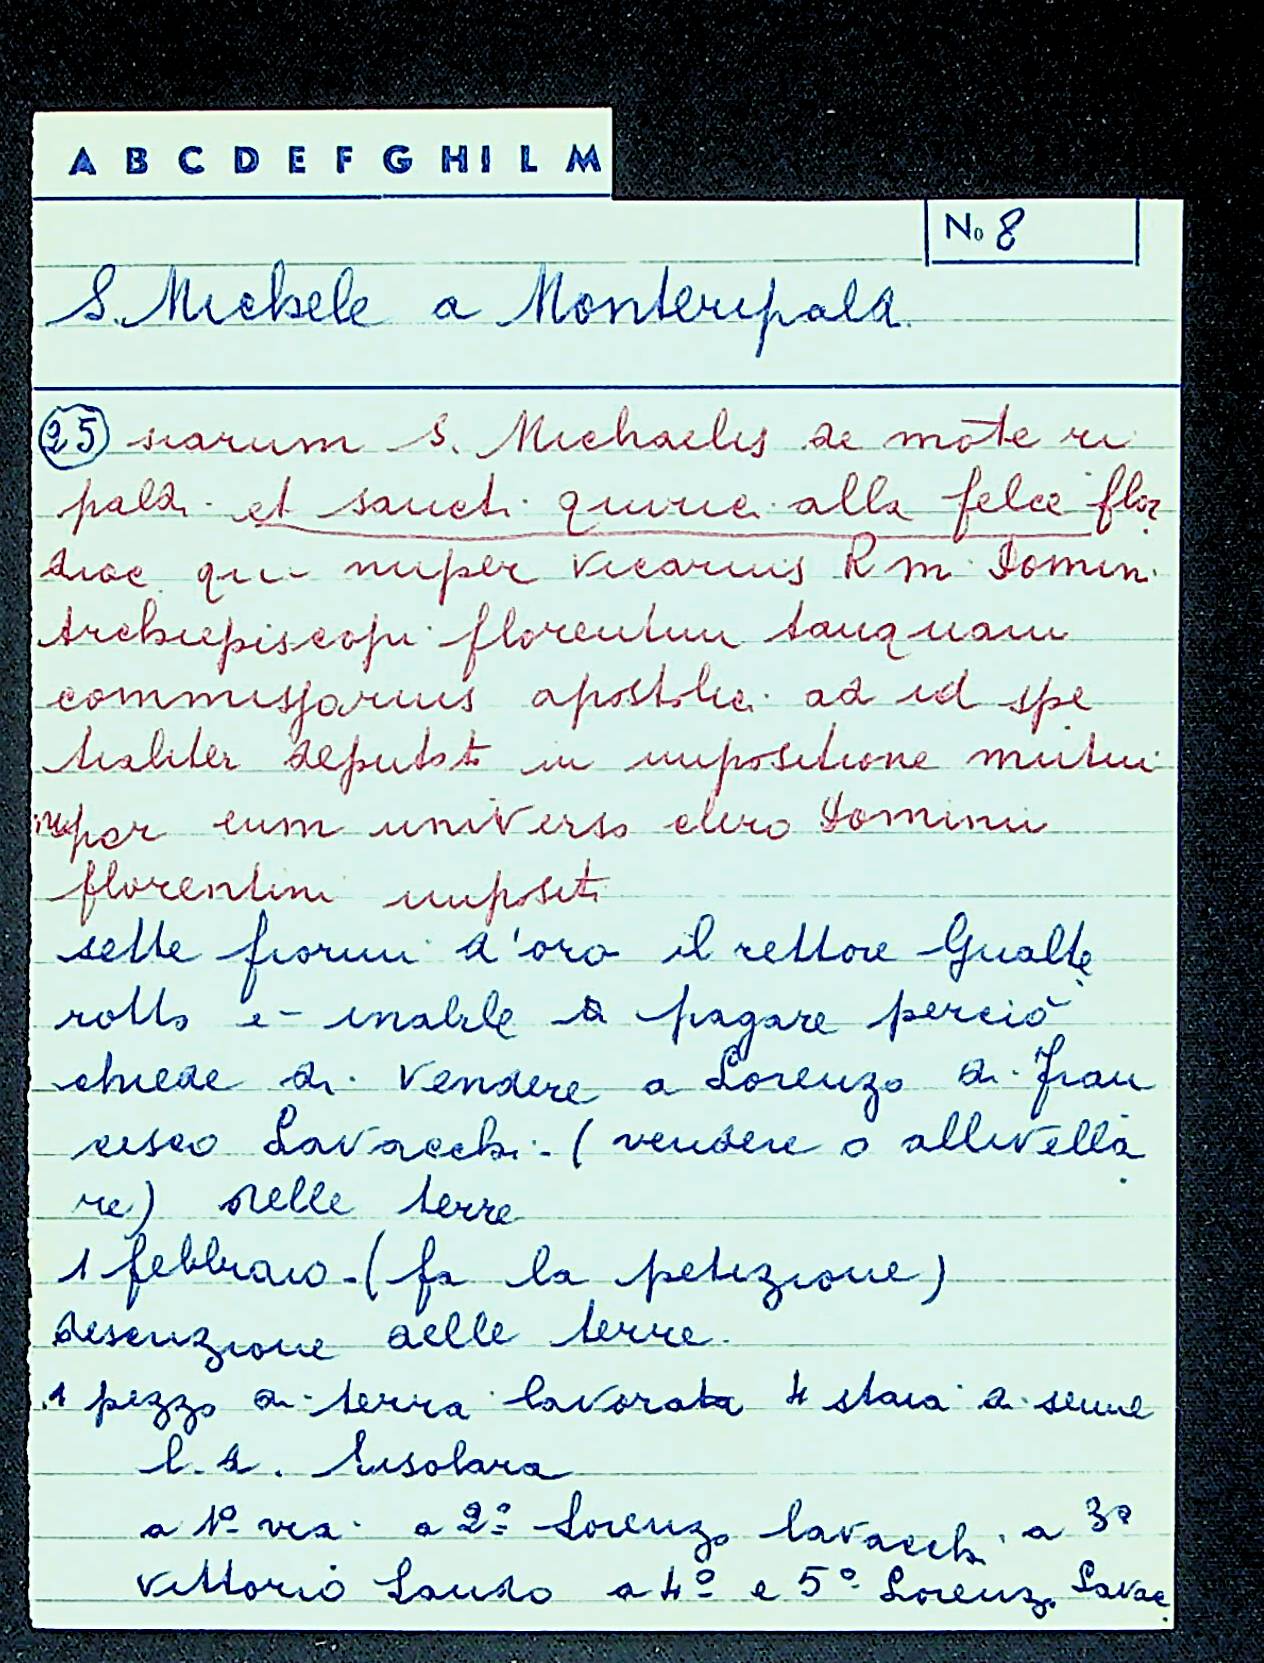 A B C D E F G H I L M
No 8
S. Michele a Monteripaldi
25 siarum S. Michaelis de mōte ri
paldi et sancti quirici alla felce flor
dioc qui nuper vicarius Rm Domin
Archiepiscopi florentini tanquam
commissarius apostolic ad id spe
tialiter deputat in impositione mutui
nuper eum universo clero Dominii
florentini imposit
sette fiorini d'oro il rettore Gualte
rotto e inabile a pagare perciò
chiede di vendere a Lorenzo di Fran
cesco Lavacchi - (vendere o allivella
re) delle terre
1 febbraio - (fa la petizione)
descrizione delle terre.
1 pezzo di terra lavorata 4 staia di seme
l.d. Risolara
a 1º via a 2º Lorenzo Lavacchi a 3º
Vittorio Lando a 4º e 5º Lorenzo Lavac